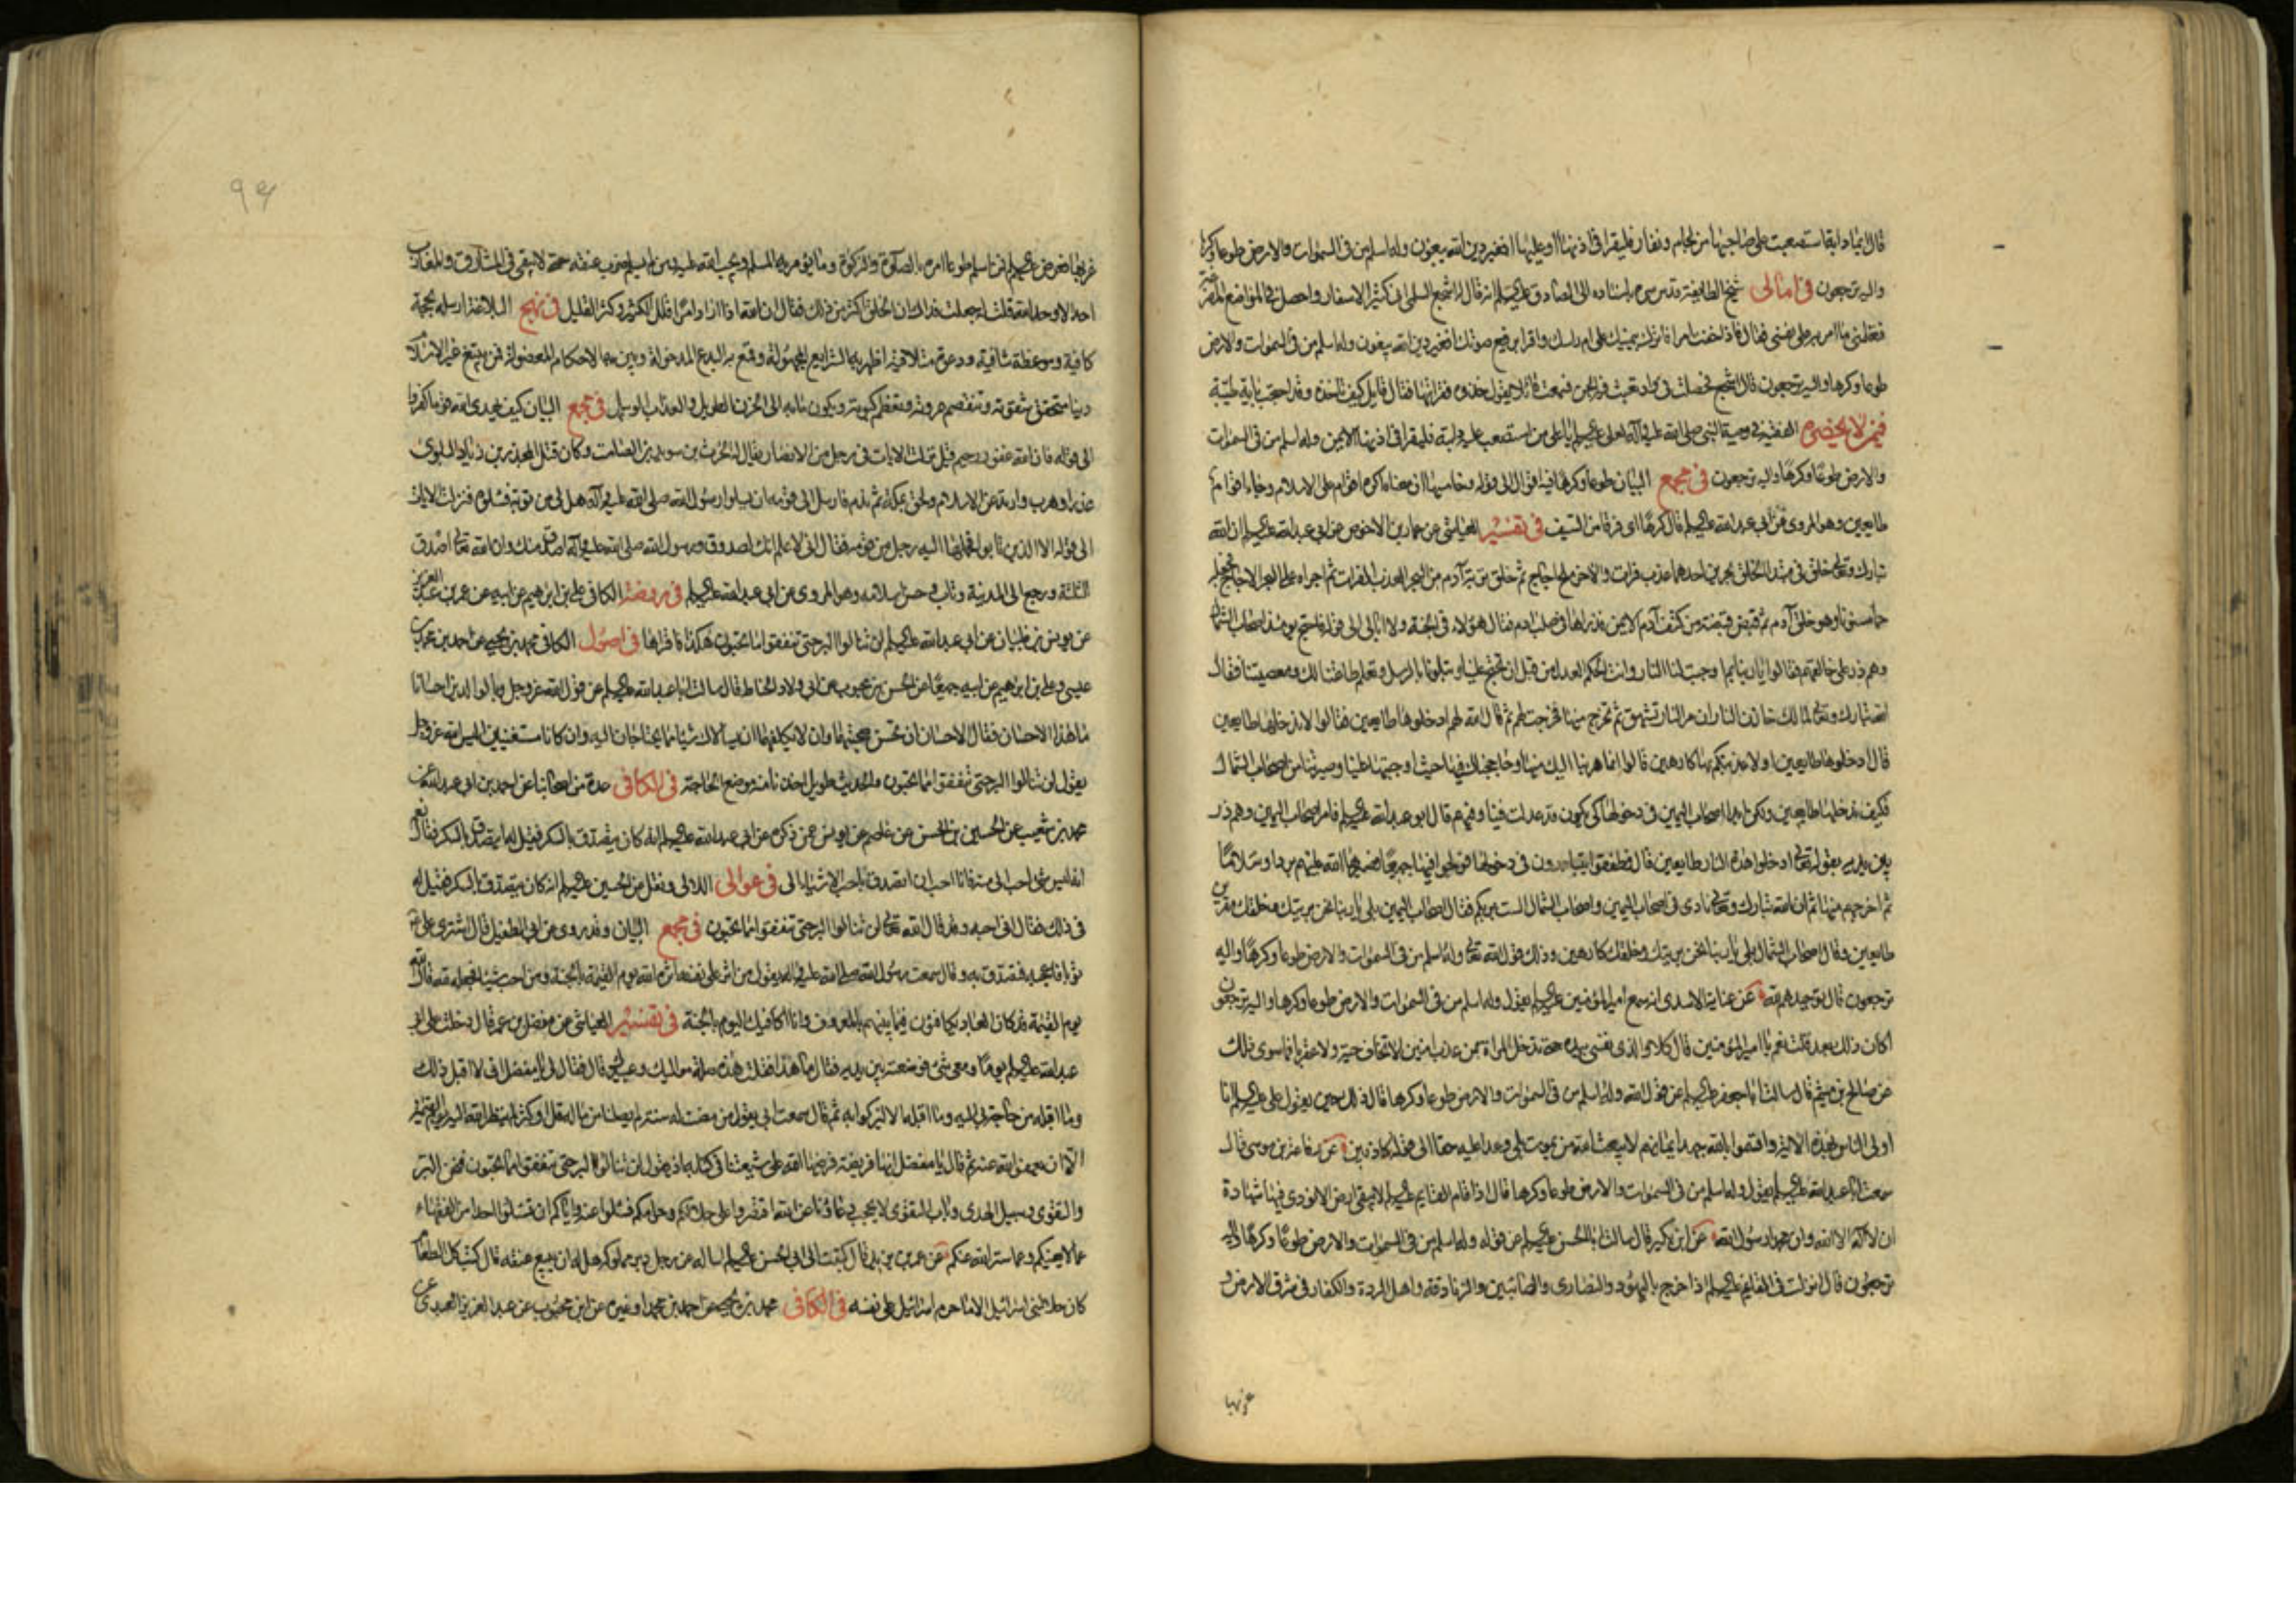 قال ايما دابة استصعبت على صاحبها من لجام ونفار فليقرا في اذنها او عليها افغير دين الله يبغون وله اسلم من في السموات والارض طوعا وكرها
واليه ترجعون في امالى شيخ الطايفة قدس سره باسناده الى الصادق عليه السلم انه قال له اشجع السلمى انى كثير الاسفار واحصل في المواضع المفزعة
فعلمنى ما امن به على نفسى فقال فاذا خفت امرا فاترك يمينك على ام راسك واقرا برفيع صوتك افغير دين الله يبغون وله اسلم من في السموات والارض
طوعا وكرها واليه ترجعون قال اشجع فحصلت في واد فيه الجن فسمعت قائلا يقول خذوه فقراتها فقال قايل كيف ناخذه وقد احتجب باية طيبة
فيمن لا يحضره الفقيه في وصية النبى صلى الله عليه وآله لعلى عليه السلم يا على من استصعب عليه دابته فليقرا في اذنها الايمن وله اسلم من في السموات
والارض طوعا وكرها واليه ترجعون في مجمع البيان طوعا وكرها فيه اقوال الى قوله وخامسها ان معناه اكره اقوام على الاسلام وجاء اقوام
طايعين وهو المروى عن ابى عبد الله عليه السلم قال كرها اى فرقا من السيف في تفسير العياشى عن عمار بن الاحوص عن ابى عبد الله عليه السلم ان الله
تبارك وتعالى خلق في مبتدا الخلق بحرين احدهما عذب فرات والاخر ملح اجاج ثم خلق تربة آدم من البحر العذب الفرات ثم اجراه على البحر الاجاج فجعله
حماء مسنونا وهو خلق آدم ثم قبض قبضة من كتف آدم الايمن فذراها في صلب ادم فقال هؤلاء في الجنة ولا ابالى الى قوله فاحتج يومئذ اصحاب الشمال
وهم ذر على خالقهم فقالوا يا ربنا بما وجبت لنا النار وانت الحكم العدل من قبل ان تحتج علينا وتبلونا بالرسل وتعلم طاعتنا لك ومعصيتنا فقال
الله تبارك وتعالى لمالك خازن النار ان مر النار تشهق ثم تخرج عنقا منها فخرجت لهم ثم قال الله لهم ادخلوها طايعين فقالوا لا ندخلها طايعين
قال ادخلوها طايعين او لاعذبنكم بها كارهين قالوا انما هربنا اليك منها وحاججناك فيها حيث اوجبتها علينا وصيرتنا من اصحاب الشمال
فكيف ندخلها طايعين ولكن ابدا اصحاب اليمين في دخولها كى تكون قد عدلت فينا وفيهم قال ابو عبد الله عليه السلم فامر اصحاب اليمين وهم ذر
بين يديه بقوله تعالى ادخلوا هذه النار طايعين قال فطفقوا يتبادرون في دخولها فولجوا فيها جميعا فصيرها الله عليهم بردا وسلاما
ثم اخرجهم منها ثم ان الله تبارك وتعالى نادى في اصحاب اليمين واصحاب الشمال الست بربكم فقال اصحاب اليمين بلى يا ربنا نحن بريتك وخلقك مقرين
طايعين وقال اصحاب الشمال بلى يا ربنا نحن بريتك وخلقك كارهين وذلك قول الله تعالى وله اسلم من في السموات والارض طوعا وكرها واليه
ترجعون قال توحيدهم لله عن عباية الاسدى انه سمع امير المؤمنين عليه السلم يقول وله اسلم من في السموات والارض طوعا وكرها واليه ترجعون
اكان ذلك بعد قلت نعم يا امير المؤمنين قال كلا والذى نفسى بيده حتى تدخل المراة بمن عذب امنين لا تخاف حية ولا عقربا فما سوى ذلك
عن صالح بن ميثم قال سالت ابا جعفر عليه السلم عن قول الله وله اسلم من في السموات والارض طوعا وكرها قال ذلك حين يقول على عليه السلم انا
اولى الناس بهذه الاية واقسموا بالله جهد ايمانهم لا يبعث الله من يموت بلى وعدا عليه حقا الى قوله كاذبين عن رفاعة بن موسى قال
سمعت ابا عبد الله عليه السلم يقول وله اسلم من في السموات والارض طوعا وكرها قال اذا قام القايم عليه السلم لا يبقى ارض الا نودى فيها شهادة
ان لا اله الا الله وان محمدا رسول الله عن ابن بكير قال سالت ابا الحسن عليه السلم عن قوله وله اسلم من في السموات والارض طوعا وكرها واليه
ترجعون قال انزلت في القايم عليه السلم اذا خرج باليهود والنصارى والصابئين والزنادقة واهل الردة والكفار في شرق الارض و
غربها
غربها فعرض عليهم فمن اسلم طوعا امره بالصلوة والزكوة وما يؤمر به المسلم ويجب الله عليه ومن لم يسلم ضرب عنقه حتى لا يبقى في المشارق والمغارب
احد الا وحد الله قلت له جعلت فداك ان الخلق اكثر من ذلك فقال ان الله اذا اراد امرا قلل الكثير وكثر القليل في نهج البلاغة ارسله بحجة
كافية وموعظة شافية ودعوة متلافية اظهر به الشرايع المجهولة وقمع به البدع المدخولة وبين به الاحكام المفصولة فمن يبتغ غير الاسلام
دينا تتحقق شقوته وتنفصم عروته وتعظم كبوته ويكون مابه الى الحزن الطويل والعذاب الوبيل في مجمع البيان كيف يهدى الله قوما كفروا
الى قوله فان الله غفور رحيم قيل نزلت الايات في رجل من الانصار يقال له الحرث بن سويد بن الصامت وكان قتل المجذر بن زياد البلوى
غدرا وهرب وارتد عن الاسلام ولحق بمكة ثم ندم فارسل الى قومه ان يسلوا رسول الله صلى الله عليه وآله هل لى من توبة فسئلوه فنزلت الايات
الى قوله الا الذين تابوا فحملها اليه رجل من قومه فقال انى لاعلم انك لصدوق ورسول الله صلى الله عليه وآله اصدق منك وان الله تعالى اصدق
الثلثة ورجع الى المدينة وتاب وحسن اسلامه وهو المروى عن ابى عبد الله عليه السلم في روضة الكافى على بن ابرهيم عن ابيه عن عمر بن عبد العزيز
عن يونس بن ظبيان عن ابى عبد الله عليه السلم لن تنالوا البر حتى تنفقوا ما تحبون هكذا فاقراها في اصول الكافى محمد بن يحيى عن احمد بن محمد بن
عيسى وعلى بن ابرهيم عن ابيه جميعا عن الحسن بن محبوب عن ابى ولاد الحناط قال سالت ابا عبد الله عليه السلم عن قول الله عز وجل وبالوالدين احسانا
ما هذا الاحسان فقال الاحسان ان تحسن صحبتهما وان لا تكلفهما ان يسالاك شيئا مما يحتاجان اليه وان كانا مستغنيين اليس الله عز وجل
يقول لن تنالوا البر حتى تنفقوا مما تحبون والحديث طويل اخذنا منه موضع الحاجة في الكافى عدة من اصحابنا عن احمد بن ابى عبد الله عن
محمد بن شعيب عن الحسين بن الحسن عن عاصم عن يونس عمن ذكره عن ابى عبد الله عليه السلم انه كان يتصدق بالسكر فقيل له اتتصدق بالسكر فقال نعم
انه ليس شئ احب الى منه فانا احب ان اتصدق باحب الاشياء الى في عوالى اللالى ونقل عن الحسين عليه السلم انه كان يتصدق بالسكر فقيل له
في ذلك فقال انى احبه وقد قال الله تعالى لن تنالوا البر حتى تنفقوا مما تحبون في مجمع البيان وقد روى عن ابى الطفيل قال اشترى على
ثوبا فاعجبه فتصدق به وقال سمعت رسول الله صلى الله عليه وآله يقول من اثر على نفسه اثره الله يوم القيمة بالجنة ومن احب شيئا فجعله لله قال الله
يوم القيمة قد كان العباد يكافئون فيما بينهم بالمعروف وانا اكافيك اليوم بالجنة في تفسير العياشى عن مفضل بن عمر قال دخلت على ابى
عبد الله عليه السلم يوما ومعى شئ فوضعته بين يديه فقال ما هذا فقلت هذه صلة مواليك وعبيدك قال فقال لى يا مفضل انى لا اقبل ذلك
وما اقبله من حاجتى اليه وما اقبله الا ليزكوا به ثم قال سمعت ابى يقول من مضت له سنة لم يصلنا من ماله قل او كثر لم ينظر الله اليه يوم القيمة
الا ان يعفو الله عنه ثم قال يا مفضل انها فريضة فرضها الله على شيعتنا في كتابه اذ يقول لن تنالوا البر حتى تنفقوا مما تحبون فنحن البر
والتقوى وسبيل الهدى وباب التقوى لا يحجب دعاؤنا عن الله اقتصروا على حلالكم وحرامكم فسئلوا عنه واياكم ان تسئلوا احدا من الفقهاء
عما لا يعنيكم وعما ستر الله عنكم عن عمر بن يزيد قال كتبت الى ابى الحسن عليه السلم اساله عن رجل دبر مملوكه هل له ان يبيع عنقه قال كتب كل الطعام
كان حلا لبنى اسرائيل الا ما حرم اسرائيل على نفسه في الكافى محمد بن يحيى عن احمد بن محمد او غيره عن ابن محبوب عن عبد العزيز العبدى عن